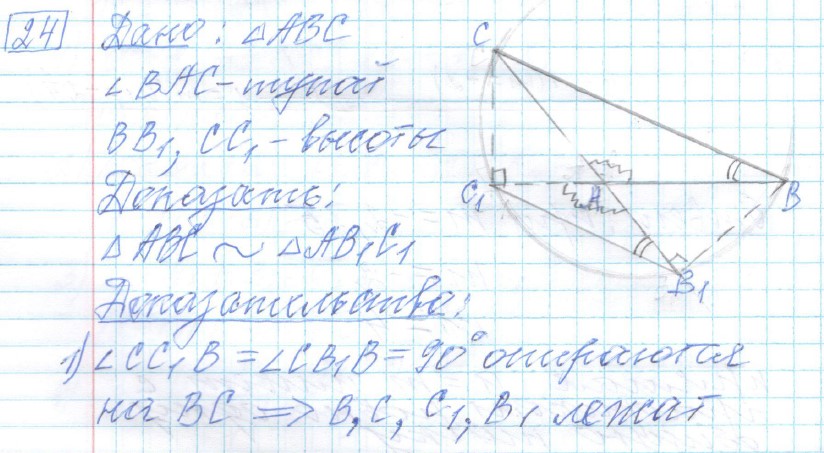 24 Дано: △ABC
∠BAC - тупой
BB₁, CC₁ - высоты
Доказать:
△ABC ~ △AB₁C₁
Доказательство:
1) ∠CC₁B = ∠CB₁B = 90° опираются
на BC => B, C, C₁, B₁ лежат
C
C₁
A
B
B₁